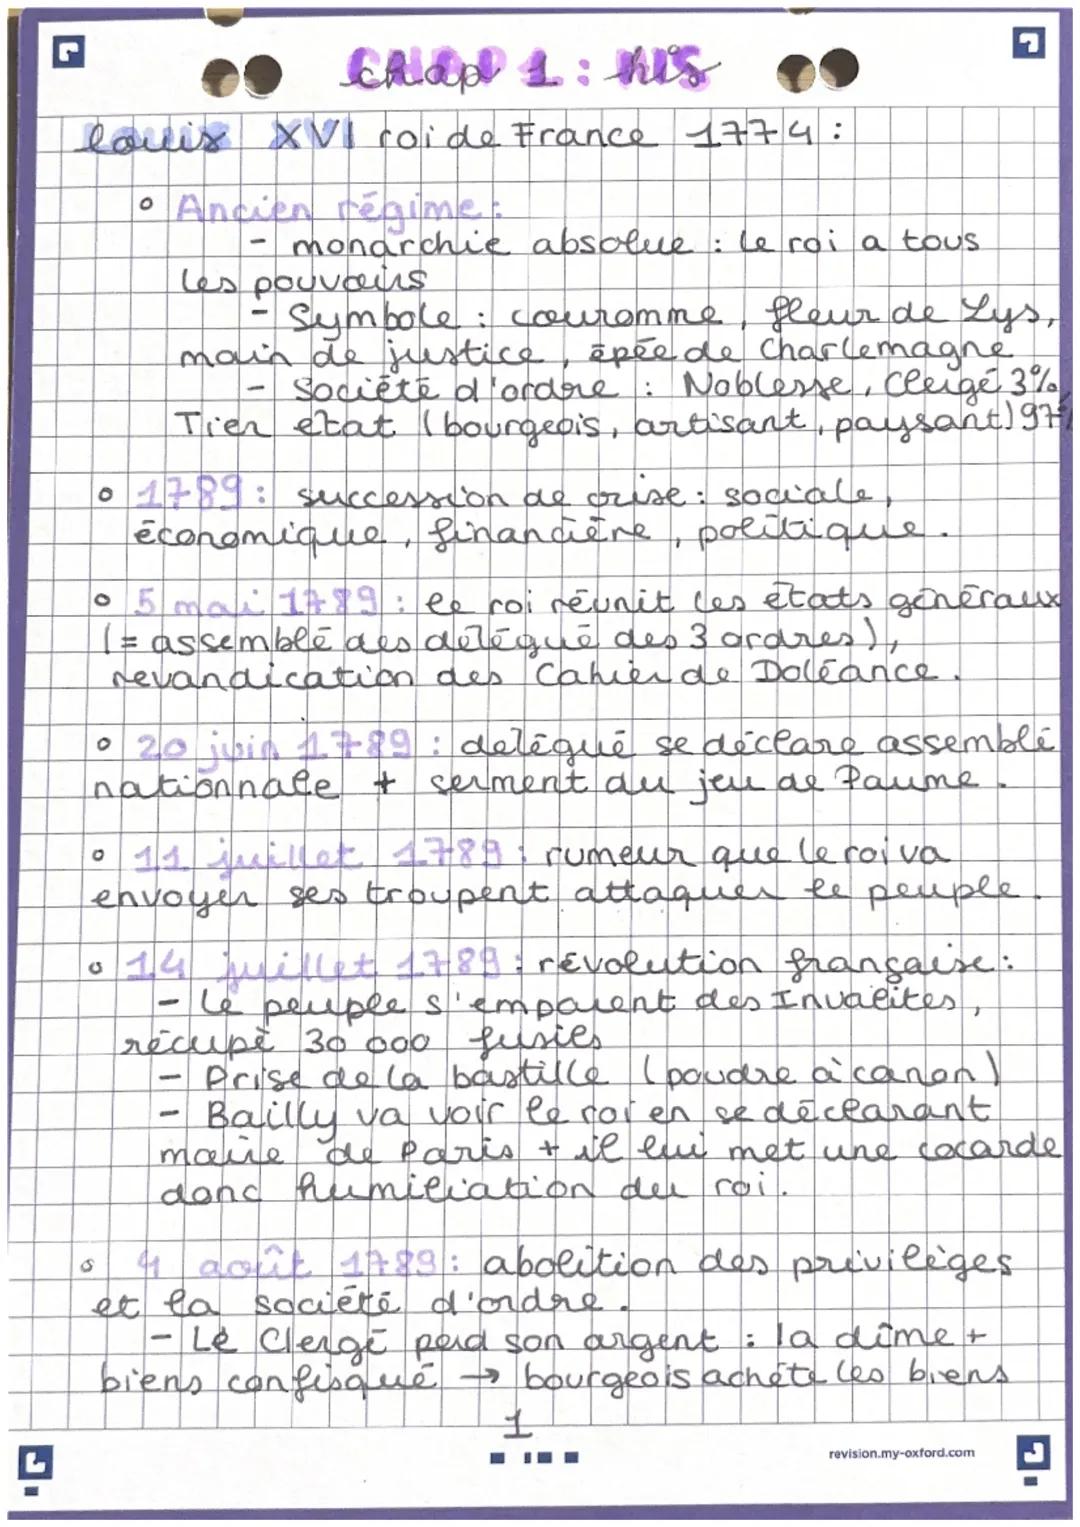 chap 1 : his
Louis XVI roi de France 1774 :
Ancien régime :
- monarchie absolue : le roi a tous
les pouvoirs
- Symbole : couronne, fleur de Lys,
main de justice, épée de Charlemagne
- Société d'ordre : Noblesse, Clergé 3%
Tier état (bourgeois, artisant, paysant) 97%
1789 : succession de crise : sociale,
économique, financière, politique.
5 mai 1789 : le roi réunit les états généraux
(= assemblé des délégué des 3 ordres),
revandication des Cahier de Doléance.
20 juin 1789 : delégué se déclare assemblé
nationnale + serment du jeu de Paume.
11 juillet 1789 : rumeur que le roi va
envoyer ses troupent attaquer le peuple.
14 juillet 1789 : révolution française :
- Le peuple s'emparent des Invalites,
récupè 30 000 fusies
- Prise de la bastille (poudre à canon)
- Bailly va voir le roi en se déclarant
maire de Paris + il lui met une cocarde
donc humiliation du roi.
4 août 1789 : abolition des privilèges
et la société d'ordre.
- Le Clergé perd son argent : la dîme +
biens confisqué → bourgeois achète les biens
1
revision.my-oxford.com